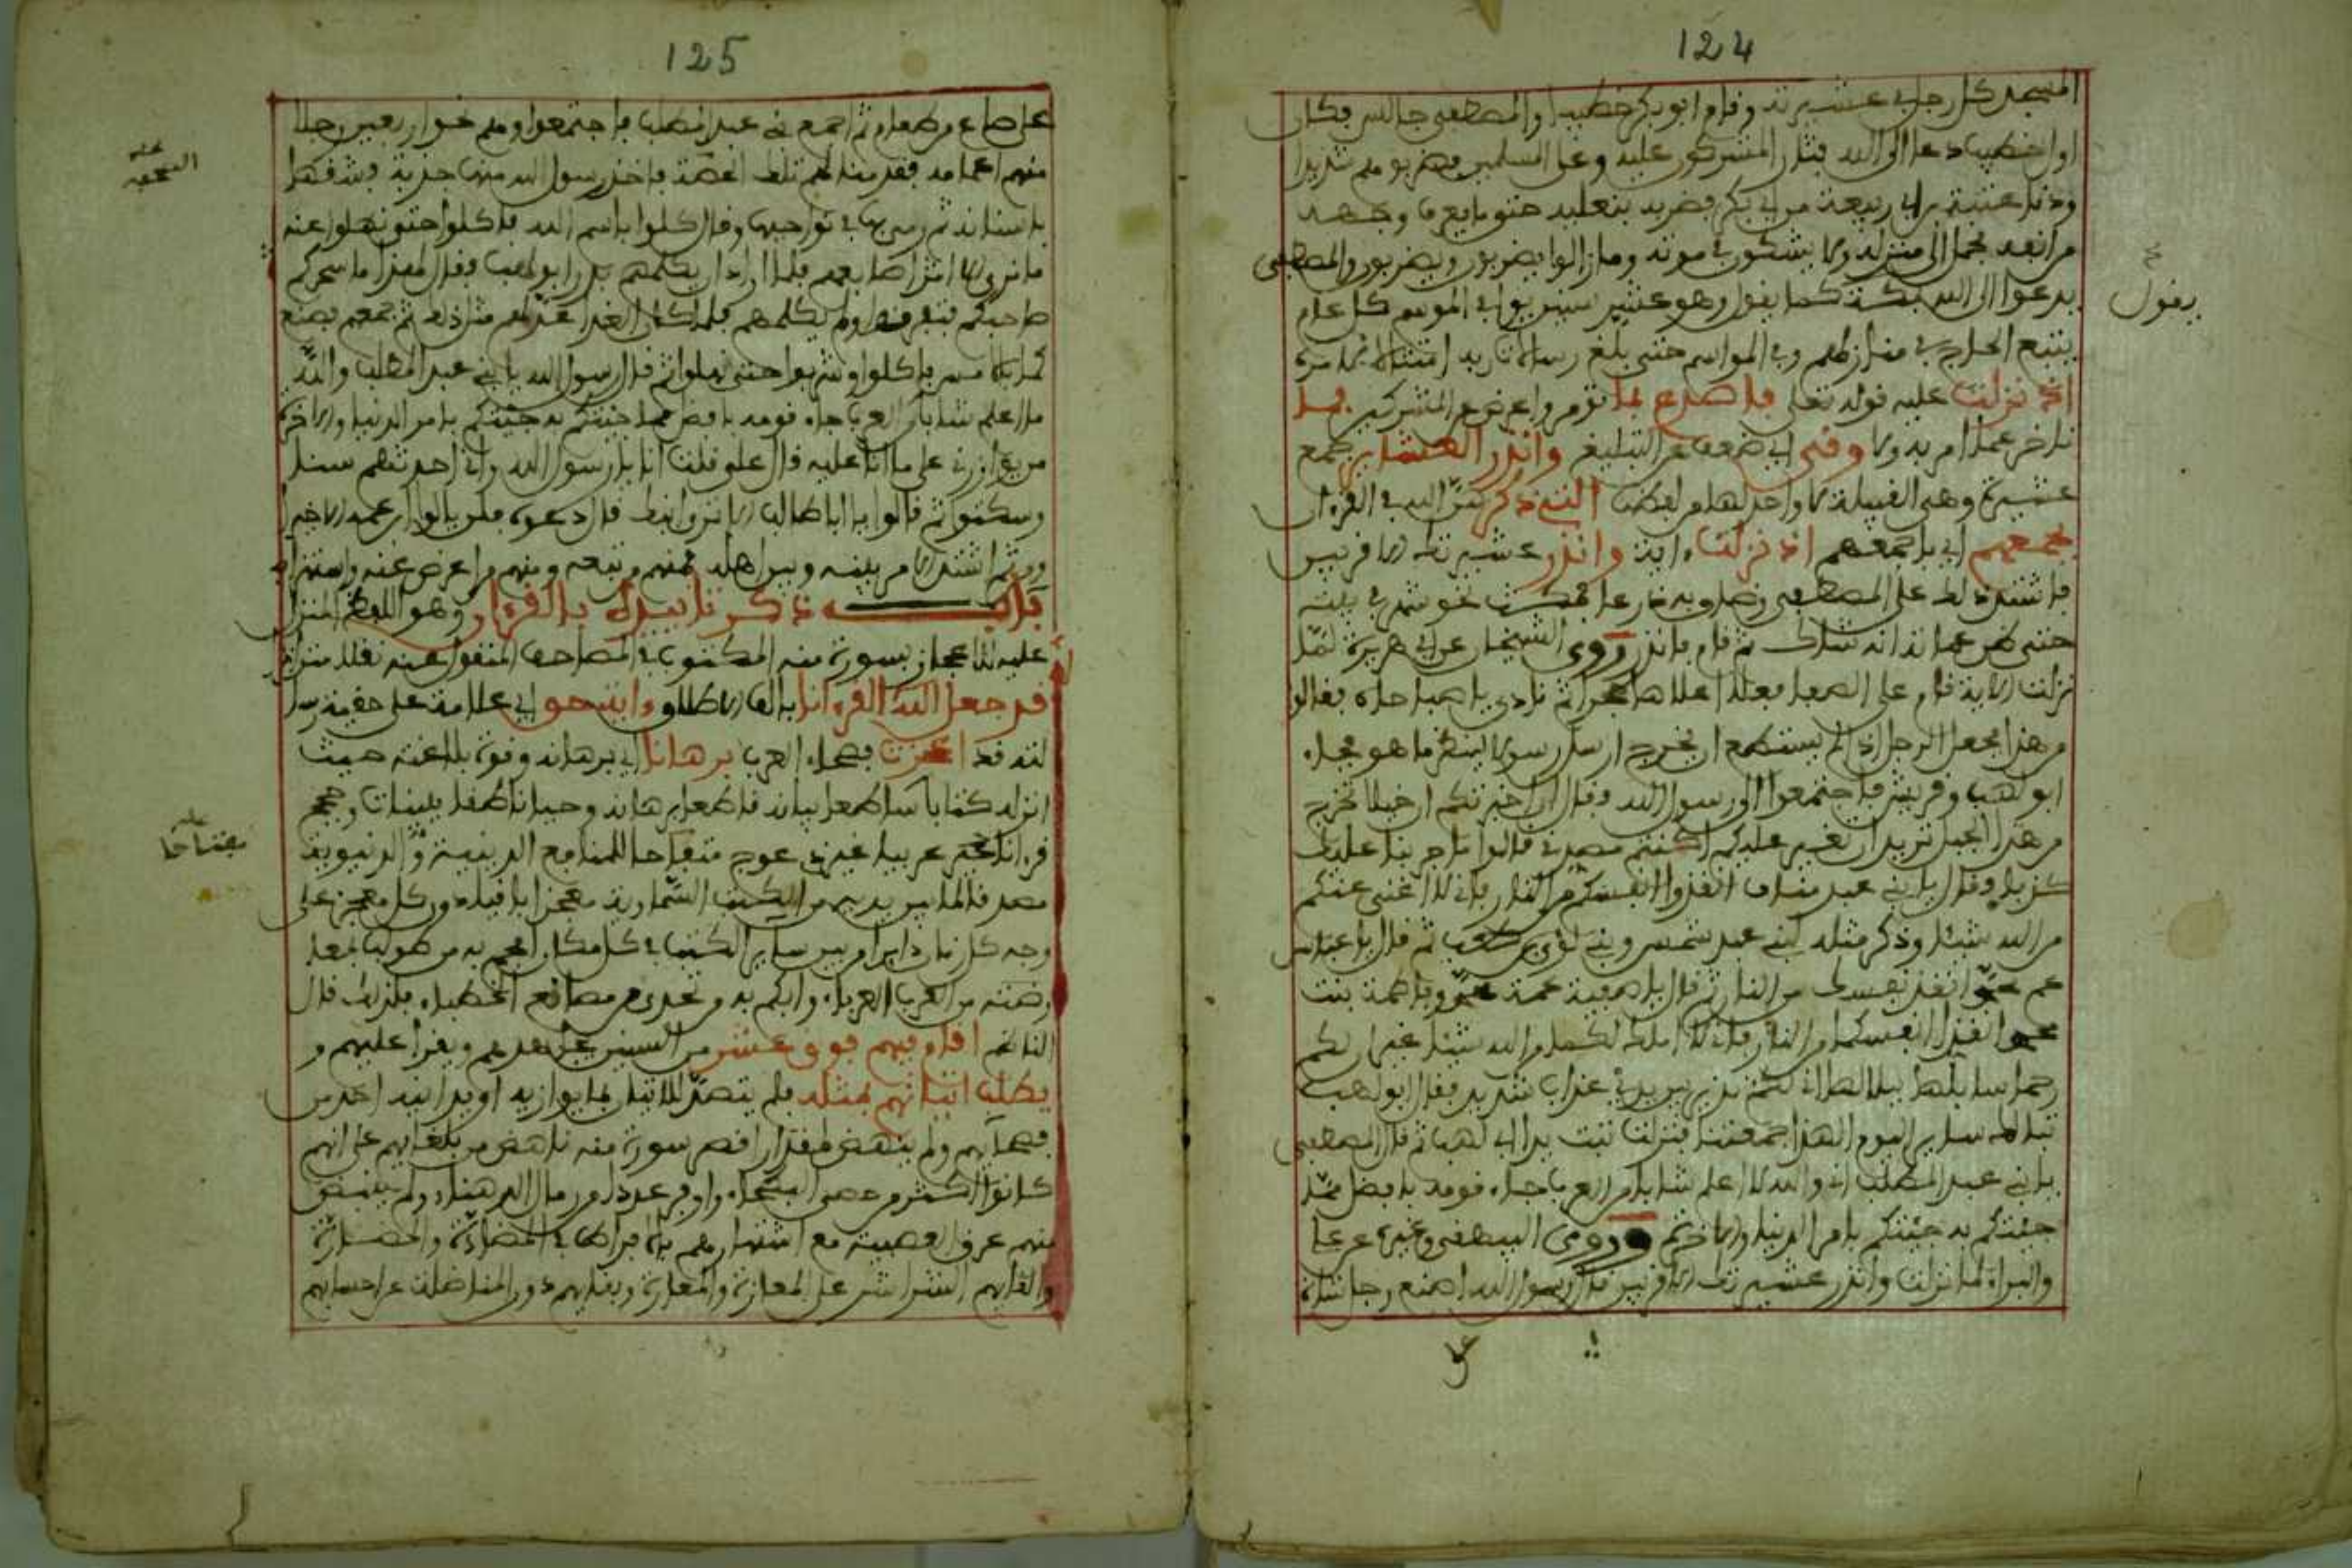 124
المسجد كل رجل في عشيرته وقام ابو بكر خطيبا والمصطفى جالس فكان
اول خطيب دعا الى الله فثار المشركون عليه وعلى المسلمين فضربوهم شديدا
ودنا عتبة بن ربيعة من ابي بكر فضربه بنعليه حتى ما يعرف وجهه
من انفه فحمل الى منزله ولا يشكون في موته وما زالوا يضربون ويضربون والمصطفى
يدعوا الى الله بمكة كما يقول وهو عشر سنين يوافي الموسم كل عام
يقول
يتبع الحاج في منازلهم وفي المواسم حتى بلغ رسالة ربه امتثالا لامره
اذ نزلت عليه قوله تعلى فاصدع بما تؤمر واعرض عن المشركين فما
تاخر عما امر به ولا وفى اي ضعف عن التبليغ وانذر العشاير جمع
عشيرة وهي القبيلة لا واحد لها من لفظها التي ذكر الله في القرءان
بجمعهم اي بان جمعهم اذ نزلت ءاية وانذر عشيرتك الاقربين
فاشتد ذلك على المصطفى وضاق به ذرعا فمكث نحو شهر في بيته
حتى ظن عماته انه شاك ثم قام فانذر روى الشيخان عن ابي هريرة لما
نزلت الاية قام على الصفا فعلا اعلاها حجرا ثم نادى يا صباحاه فقالوا
من هذا فجعل الرجل اذا لم يستطع ان يخرج ارسل رسولا لينظر ما هو فجاء
ابو لهب وقريش فاجتمعوا الى رسول الله فقال ان اخبرتكم ان خيلا تخرج
من هذا الجبل تريد ان تغير عليكم اكنتم مصدقي قالوا ما جربنا عليك
كذبا فقال يا بني عبد مناف انقذوا انفسكم من النار فاني لا اغني عنكم
من الله شيئا وذكر مثله لبني عبد شمس وبني لؤي بن كعب ثم قال يا عباس
عم محمد انقذ نفسك من النار ثم قال يا صفية عمة محمد ويا فاطمة بنت
محمد انقذا انفسكما من النار فاني لا املك لكما من الله شيئا غير ان لكم
رحما سابلها ببلالها اني لكم نذير بين يدي عذاب شديد فقال ابو لهب
تبا لك ساير اليوم الهذا جمعتنا فنزلت تبت يدا ابي لهب ثم قال المصطفى
يا بني عبد المطلب اني والله لا اعلم شابا من العرب جاء قومه بافضل مما
جئتكم به جئتكم بامر الدنيا والاخرة وروى البيهقي وغيره عن علي
والبراء لما نزلت وانذر عشيرتك الاقربين قال رسول الله اصنع رجل شاة
125
على صاع من طعام ثم اجمع لي عبد المطلب فاجتمعوا وهم نحو اربعين رجلا
منهم اعمامه فقدمنا لهم تلك الجفنة فاخذ رسول الله منها جذبة فشقها
باسنانه ثم رمى بها في نواحيها وقال كلوا باسم الله فاكلوا حتى نهلوا عنه
ما نرى الا اثر اصابعهم فلما اراد ان يكلمهم بدر ابو لهب فقال لهذا ما سحركم
صاحبكم فتفرقوا ولم يكلمهم فلما كان الغد اعد لهم مثل ذلك ثم جمعهم فصنع
كما بالامس فاكلوا وشربوا حتى نهلوا ثم قال رسول الله يا بني عبد المطلب والله
ما اعلم شابا في العرب جاء قومه بافضل مما جئتكم به جئتكم بامر الدنيا والاخرة
من يوازرني على ما انا عليه قال علي فقلت انا يا رسول الله واني احدثهم سنا
وسكتوا ثم قالوا يا ابا طالب الا ترى ابنك قال دعوه فلن يالو ابن عمه الاخير
ثم اشتد الامر بينه وبين اهله فمنهم من تبعه ومنهم من اعرض عنه واستهزا به
باب ذكر تاييده بالقرءان وهو اللفظ المنزل
عليه للاعجاز بسورة منه المكتوب في المصاحف المنقول عنه نقلا متواترا
قد جعل الله القرءانا بالف الاطلاق وايتحو اي علامة على حقية رسا
لته قد اعجزت فصحاء العرب برهانا اي برهانه وقوة بلاغته حيث
انزله كتابا ساطعا بيانه قاطعا برهانه وحيا ناطقا ببينات وحجج
قرءانا عربيا غير ذي عوج مفتاحا للمنافع الدينية والدنيوية
مفتاحا
مصدقا لما بين يديه من الكتب السماوية معجزا باقيا دون كل معجز على
وجه كل زمان دايرا من بين ساير الكتب في كل مكان افحم به من طولب بمعا
رضته من العرب العرباء وابكم به من تحدى من مصاقع الخطباء فلذلك قال
الناظم اقام فيهم فوق عشر من السنين يعدهم ويقرا عليهم و
يطلب اتيانهم بمثله فلم يتصد للاتيان بما يوازيه او يدانيه احد من
فصحائهم ولم ينهض لمقدار اقصر سورة منه ناهض من بلغائهم على انهم
كانوا اكثر من حصى البطحاء واوفر عددا من رمال الدهناء ولم ينبض
منهم عرق العصبية مع اشتهارهم بالافراط في المضادة والمضارة
والقائهم الشراشر على المعازة والمعارة ولقائهم دون المناضلة عن احسابهم